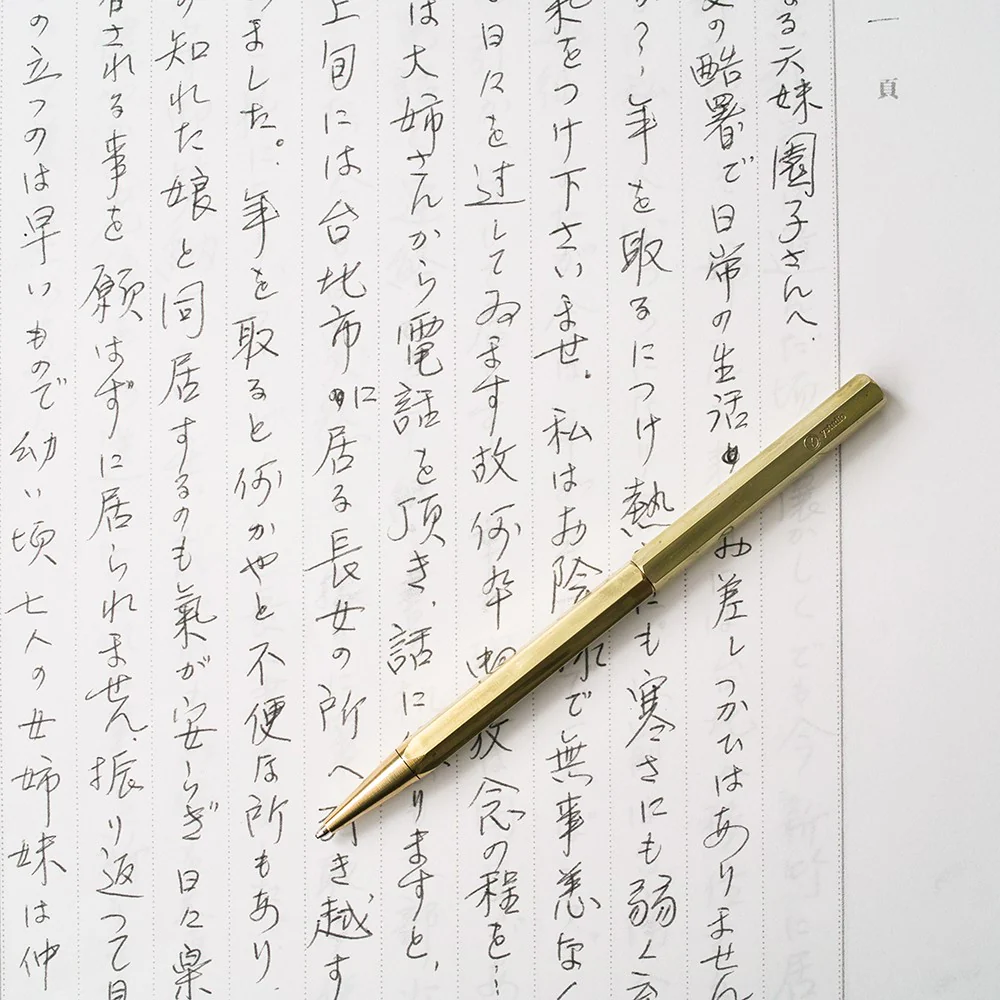 一頁
る六妹 園子さんへ.
の酷署で日常の生活 お差しつかひはありません
か?、年を取るにつけ熱 にも寒さにも弱く
をつけ下さいませ。私はお陰 で無事恙なく
日々を過してゐます故何卒 放念の程を…
は大姉さんから電話を頂き、話に りますと、
上旬には台北市に居る長女の所へ き越す
ました。年を取ると何かやと不便な所もあり
の知れた娘と同居するのも氣が安らぎ日々楽
される事を願はずに居られません、振り返って見
の立つのは早いもので幼い頃七人の女姉妹は仲
ystudio